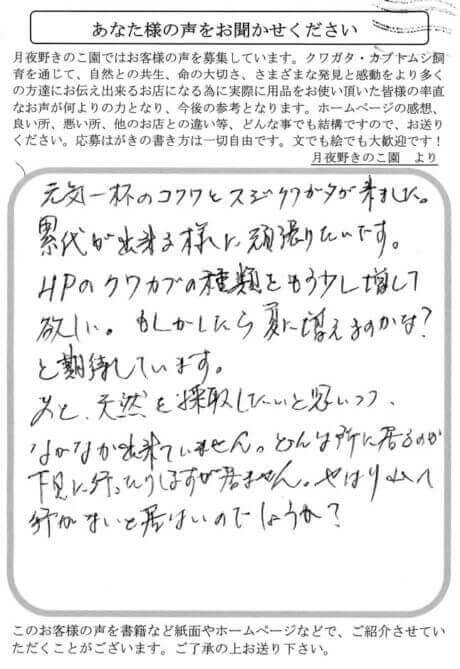 あなた様の声をお聞かせください
月夜野きのこ園ではお客様の声を募集しています。クワガタ・カブトムシ飼
育を通じて、自然との共生、命の大切さ、さまざまな発見と感動をより多く
の方達にお伝え出来るお店になる為に実際に用品をお使い頂いた皆様の率直
なお声が何よりの力となり、今後の参考となります。ホームページの感想、
良い所、悪い所、他のお店との違い等、どんな事でも結構ですので、お送り
ください。応募はがきの書き方は一切自由です。文でも絵でも大歓迎です！
月夜野きのこ園　より
元気一杯のコクワとスジクワガタが来ました。
累代が出来る様に頑張りたいです。
HPのクワカブの種類をもう少し増して
欲しい。もしかしたら夏に増えるのかな？
と期待しています。
あと、天然を採取したいと思いつつ、
なかなか出来ていません。どんな所に居るのか
下見に行ったりしますが居ません。やはり山へ
行かないと居ないのでしょうか？
このお客様の声を書籍など紙面やホームページなどで、ご紹介させてい
ただくことがございます。ご了承の上お送り下さい。